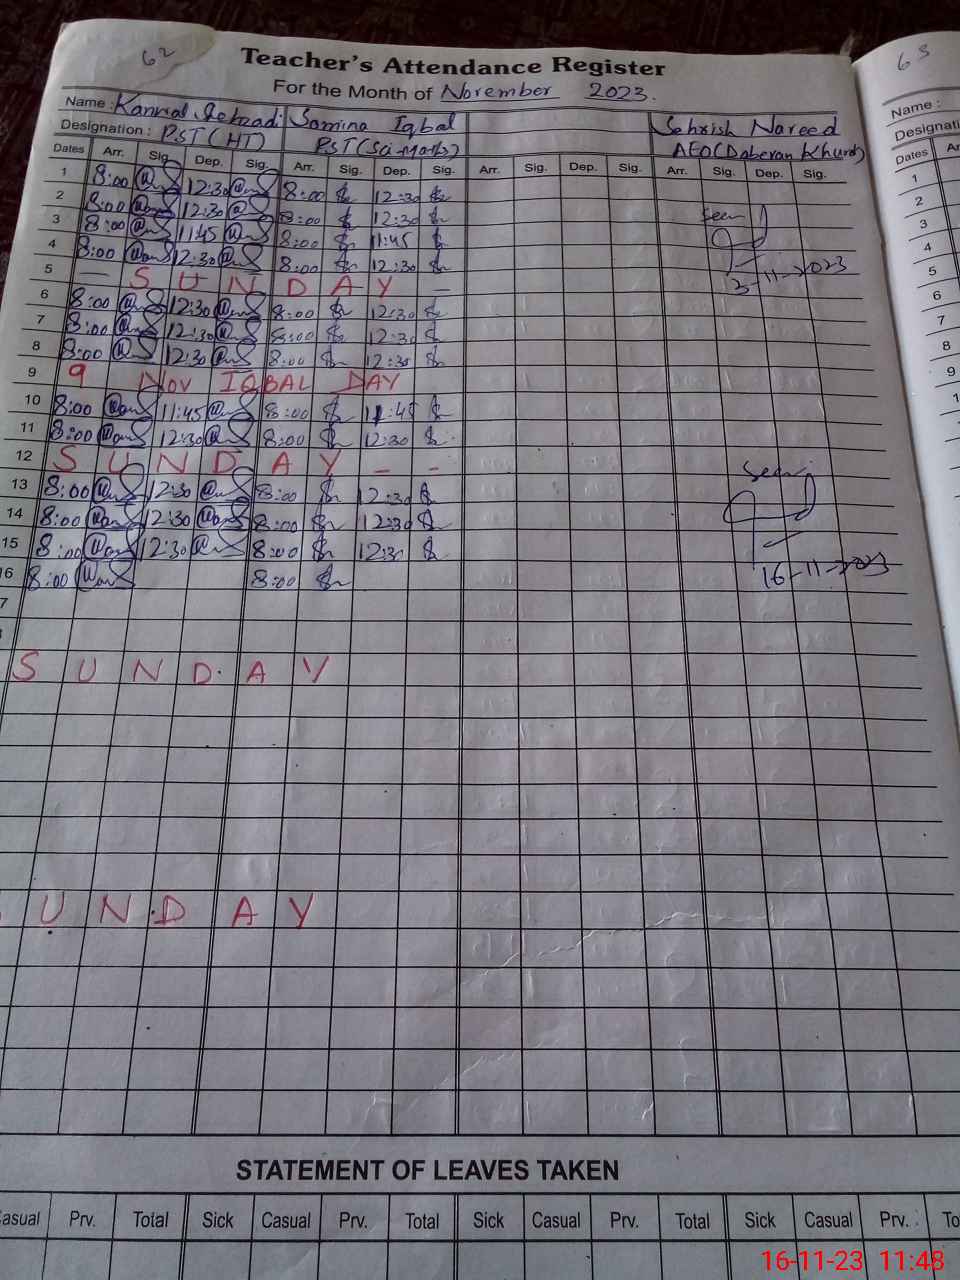 62
63
Teacher's Attendance Register
For the Month of November 2023.
Name : Kanwal Shehzadi Samina Iqbal Sehrish Nareed Name :
Designation : PST (HT) PST (Sci-Math) AEO (Daberan Khurd)
Dates Arr. Sig. Dep. Sig. Arr. Sig. Dep. Sig. Arr. Sig. Dep. Sig. Arr. Sig. Dep. Sig. Dates
1 8:00 12:30 8:00 12:30 1
2 8:00 12:30 8:00 12:30 seen 2
3 8:00 11:45 8:00 11:45 3
4 8:00 12:30 8:00 12:30 3-11-2023 4
5 — S U N D A Y — 5
6 8:00 12:30 8:00 12:30 6
7 8:00 12:30 8:00 12:30 7
8 8:00 12:30 8:00 12:30 8
9 9 Nov IQBAL DAY 9
10 8:00 11:45 8:00 11:45
11 8:00 12:30 8:00 12:30
12 S U N D A Y - -
13 8:00 12:30 8:00 12:30 seen
14 8:00 12:30 8:00 12:30
15 8:00 12:30 8:00 12:30
16 8:00 8:00 16-11-2023
7
S U N D A Y
U N D A Y
STATEMENT OF LEAVES TAKEN
Casual Prv. Total Sick Casual Prv. Total Sick Casual Prv. Total Sick Casual Prv. To
16-11-23 11:48